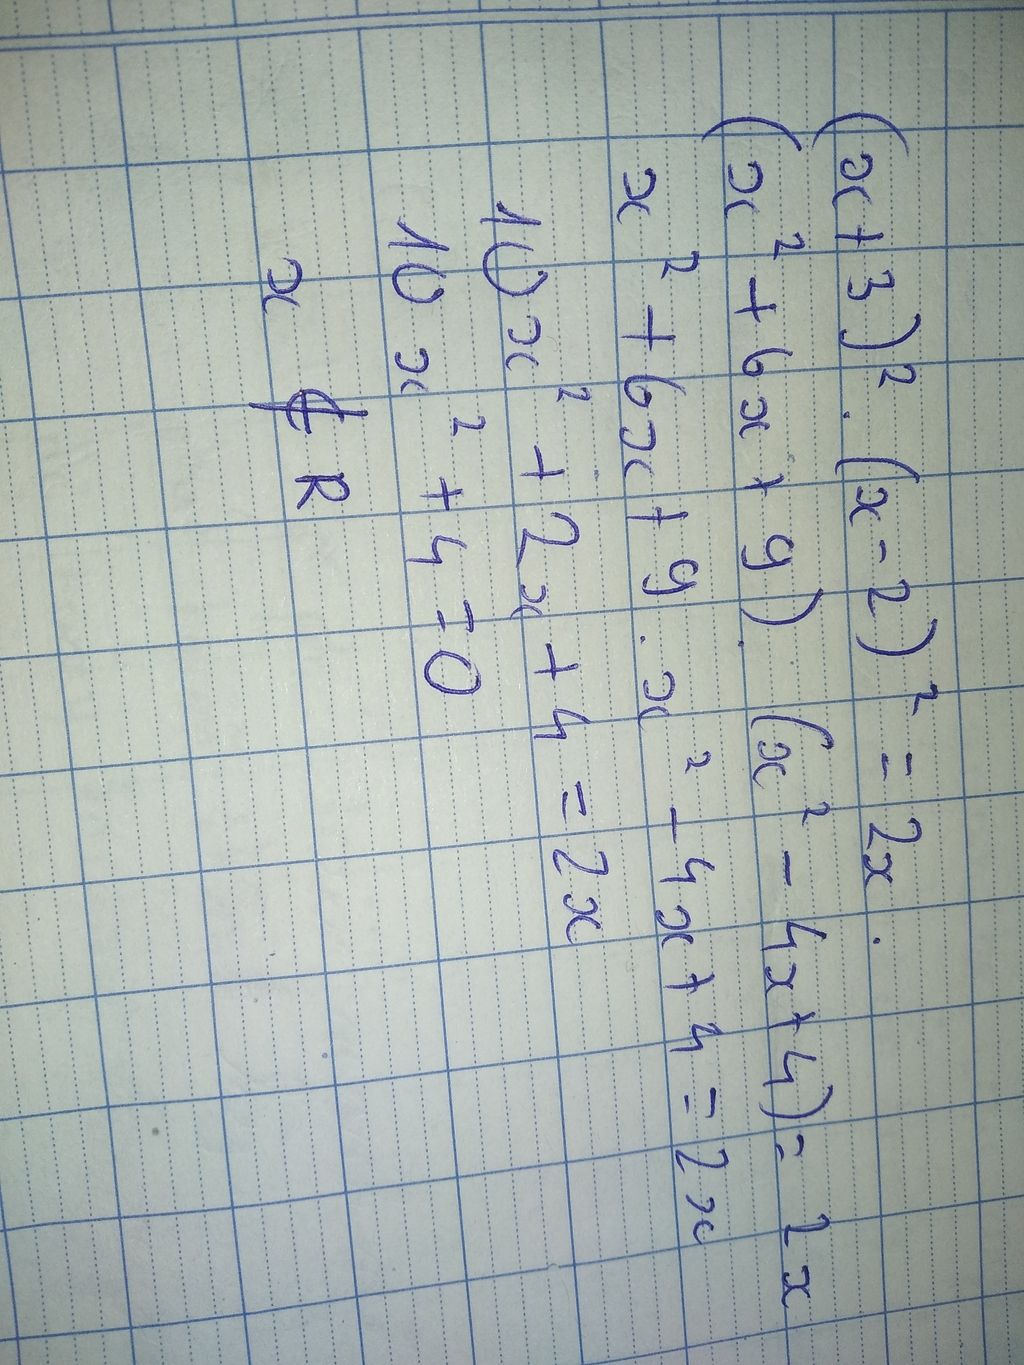 (x+3)². (x-2)² = 2x.
(x² + 6x + 9). (x² - 4x+4) = 2x
x² + 6x + 9 . x² - 4x + 4 = 2x
10x² + 2x + 4 = 2x
10x² + 4 = 0
x ∉ R